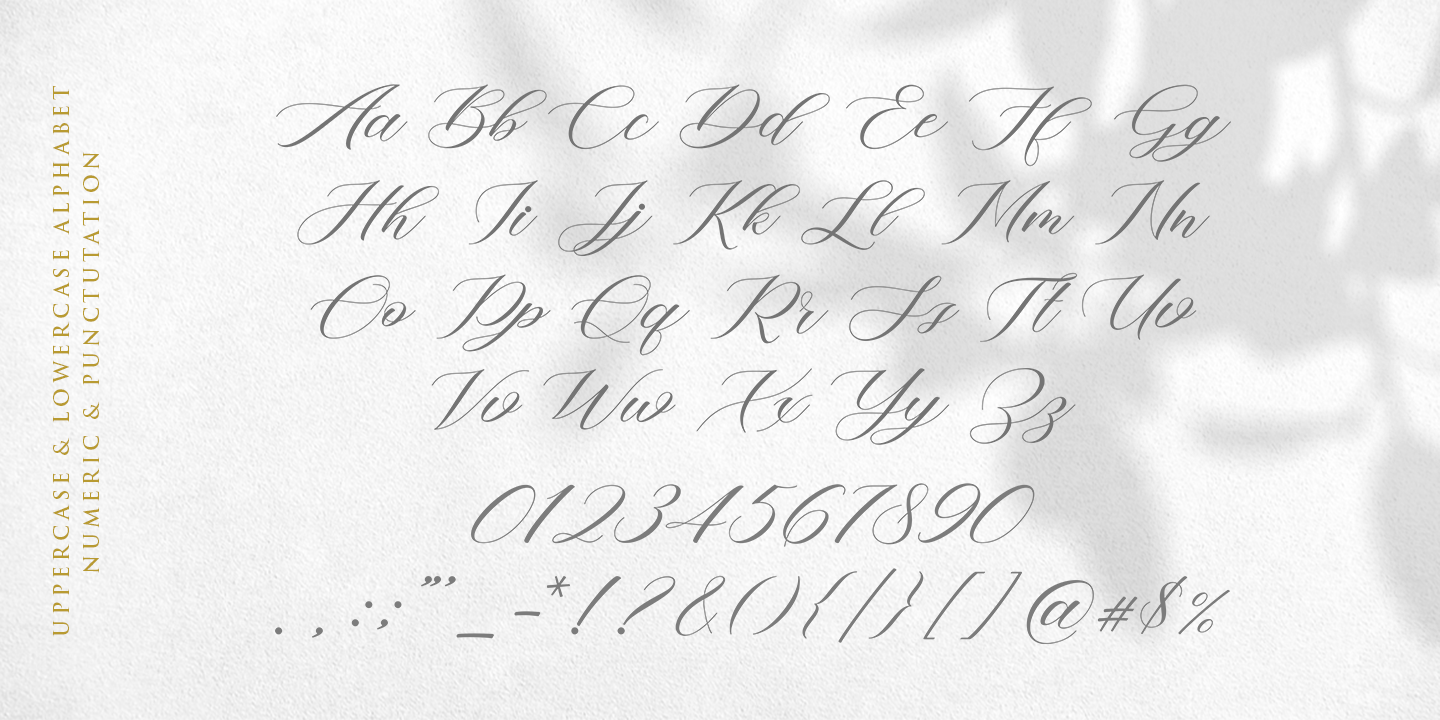 UPPERCASE & LOWERCASE ALPHABET
NUMERIC & PUNCTUTATION
Aa Bb Cc Dd Ee Ff Gg
Hh Ii Jj Kk Ll Mm Nn
Oo Pp Qq Rr Ss Tt Uu
Vv Ww Xx Yy Zz
01234567890
. , : ; ” ’ _ - * ! ? & ( ) { / } [ ] @ # $ %